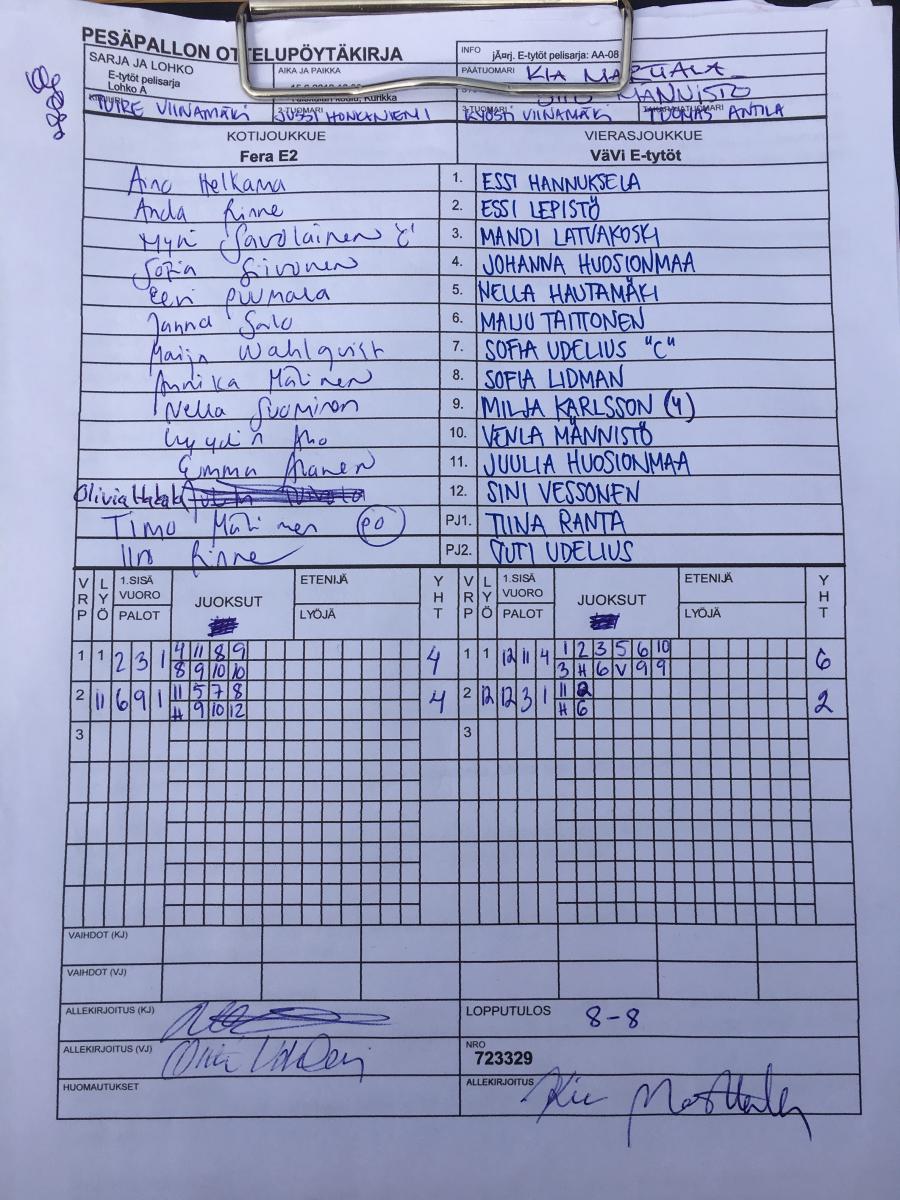 PESÄPALLON OTTELUPÖYTÄKIRJA
SARJA JA LOHKO
E-tytöt pelisarja
Lohko A
AIKA JA PAIKKA
Kurikka
INFO jÄ¤rj. E-tytöt pelisarja: AA-08
PÄÄTUOMARI KIA
MÄNNISTÖ
KIRJURI TUIRE VIINAMÄKI
3-TUOMARI JUSSI HONKANIEMI
KYÖSTI VIINAMÄKI
TAKARAJATUOMARI TUOMAS ANTILA
KOTIJOUKKUE VIERASJOUKKUE
Fera E2 VäVi E-tytöt
Aino Helkama 1. ESSI HANNUKSELA
Anda Rinne 2. ESSI LEPISTÖ
Savolainen "C" 3. MANDI LATVAKOSKI
Sofia Sivonen 4. JOHANNA HUOSIONMAA
Eevi Puumala 5. NELLA HAUTAMÄKI
Janna Salo 6. MAIJU TAITTONEN
Maija Wahlqvist 7. SOFIA UDELIUS "C"
Annika Mäkinen 8. SOFIA LIDMAN
Nella Suominen 9. MILJA KARLSSON (4)
Aho 10. VENLA MÄNNISTÖ
Emma Alanen 11. JUULIA HUOSIONMAA
Olivia 12. SINI VESSONEN
Timo Mäkinen PO PJ1. TIINA RANTA
Rinne PJ2. OUTI UDELIUS
VRP LYÖ 1.SISÄ VUORO PALOT JUOKSUT ETENIJÄ LYÖJÄ YHT VRP LYÖ 1.SISÄ VUORO PALOT JUOKSUT ETENIJÄ LYÖJÄ YHT
1 1 2 3 1 4 11 8 9 4 1 1 12 11 4 1 2 3 5 6 10 6
8 9 10 10 3 H 6 V 9 9
2 11 6 9 1 11 5 7 8 4 2 12 12 3 1 11 2 2
H 9 10 12 H 6
3 3
VAIHDOT (KJ)
VAIHDOT (VJ)
ALLEKIRJOITUS (KJ) LOPPUTULOS 8-8
ALLEKIRJOITUS (VJ) NRO
723329
HUOMAUTUKSET ALLEKIRJOITUS